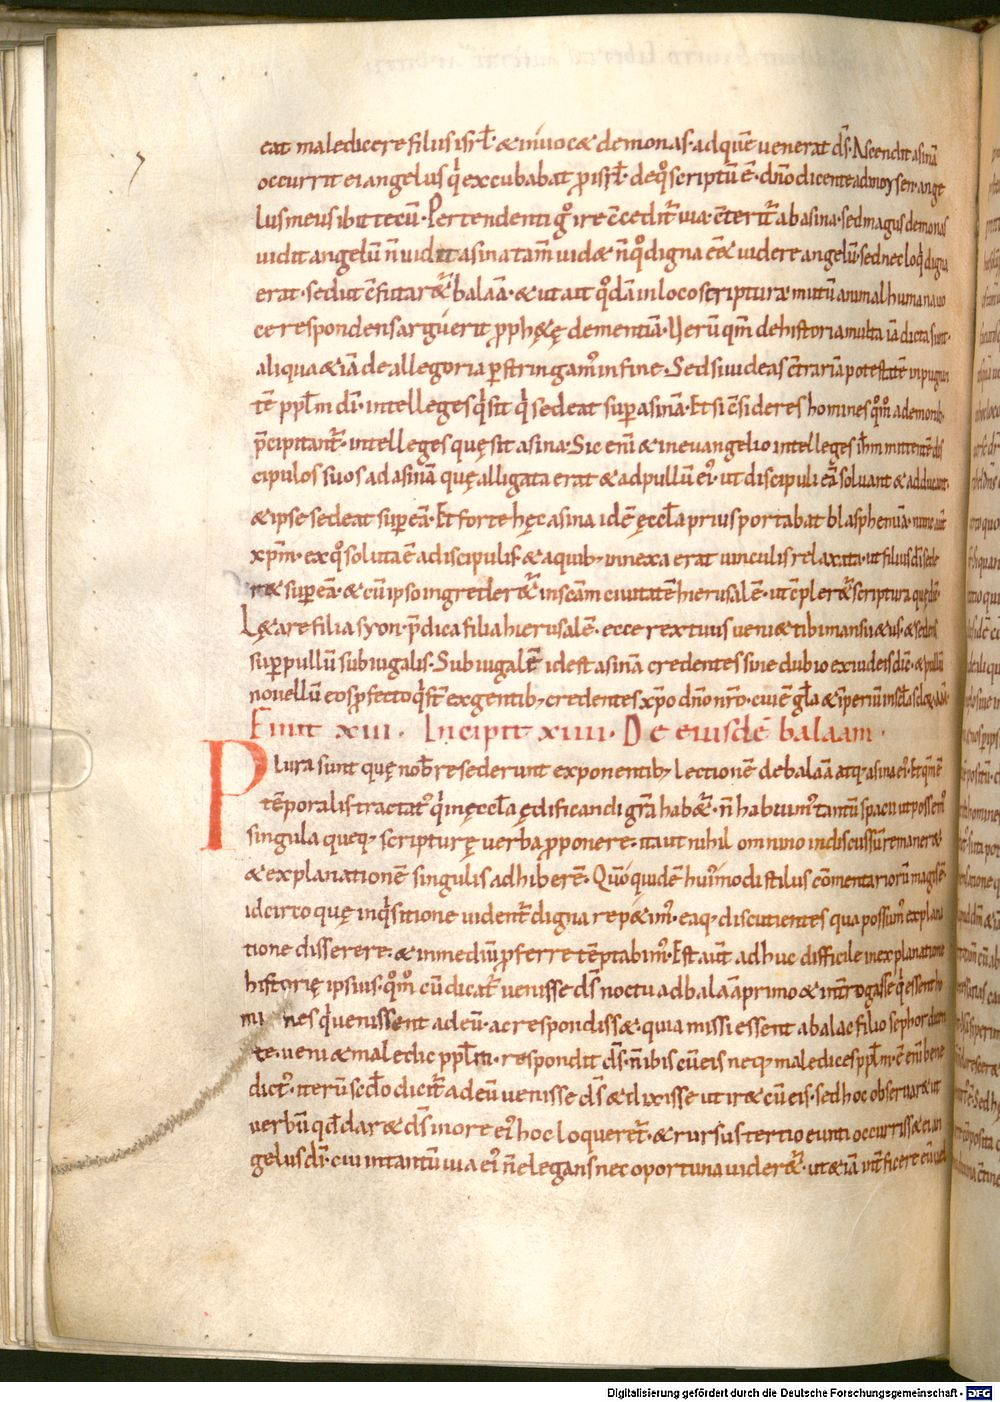 eat maledicere filiis isrł· & inuoc& demonas· ad quē uenerat ds̄· Ascendit asinā
occurrit ei angelus qͥ excubabat ꝓ isrł· de qͦ scriptū ē· dn̄o dicente ad moysen· ange
lus meus ibit tecū· Pertendenti gͦ ire c̄cedit᷑ uia· c̄terit᷑ ab asina· sed magus demonas
uidit angelū n̄ uidit asina tam̄ uid& n̄ qͦ digna eē& uidere angelū· sed nec loqͥ digna
erat· sed ut c̄futar&᷑ balaā· & ut ait qͦdā in loco scriptura mutū animal humana uo
ce respondens arguerit ꝓph&ę dementiā· Uerū qm̄ de historia multa iā dicta sunt·
aliqua & iā de allegoria ꝑstringamꝰ in fine· Sed si uideas c̄trariā potestatē inpugnan
tē ppl̄m dī· intelleges qͥs sit qͥ sedeat suꝑ asinā· Et si c̄sideres homines qͦmͦ a demonib·
p̄cipitant᷑· intelleges quę sit asina· Sic enī & in euangelio intelleges ih̄m mittentē dis
cipulos suos ad asinā quę alligata erat & ad pullū eiꝰ· ut discipuli eā soluant & adducant·
& ipse sedeat suꝑ eā· Et forte hęc asina idē ęccła prius portabat blasphemiā· nunc aūt
xp̄m· ex qͦ soluta ē a discipulis & a quibꝫ innexa erat uinculis relaxata· ut filius dī sede
r& suꝑ eā· & cū ipso ingreder&᷑ in sc̄am ciuitatē hierusalē· ut c̄pler&᷑ scriptura quę dic̄·
L&are filia syon· p̄dica filia hierusalē· ecce rex tuus ueni& tibi mansu&us· & sedens
suꝑ pullū subiugalis· Subiugalē id est asinā credentes sine dubio ex iudeis dic̄· & pullū
nouellū eos ꝓfecto qͥ st̄ ex gentibꝫ credentes xp̄o dn̄o nr̄o· cui ē gła & īperiū in scła scłoꝝ am̄·
Finit xiii· Incipit xiiii· De eiusdē balaam·
Plura sunt quę nob̄ resederunt exponentibꝫ lectionē de balaā atqꝫ asina eiꝰ· Et qm̄ ē
tēporalis tractatꝰ qͥ in ęccła ędificandi gr̄a hab&᷑· n̄ habuimꝰ tantū spacii ut possemꝰ
singula queqꝫ scripturę uerba ꝓponere· ita ut nihil omnino indiscussū remaner&
& explanationē singulis adhiberē· Qm̄ quidē huiꝰmodi stilus cōmentariorū magis ē·
idcirco quę inqͥsitione uident᷑ digna rep&imꝰ· eaqꝫ discutientes qua possumꝰ explana
tione disserere· & in mediū ꝓferre tēptabimꝰ· Est aūt adhuc difficile in explanatione
historię ipsius· qͦmͦ cū dicat᷑ uenisse ds̄ noctu ad balaā primo & int̄rogasse qͥ essent ho
mines qͥ uenissent ad eū· ac respondiss&· quia missi essent a balac filio sephor
te· ueni & maledic ppl̄m· respondit ds̄· n̄ ibis cū eis neqꝫ maledices ppl̄m· ē enī bene
dictꝰ· iterū sc̄do dicit᷑ ad eū uenisse ds̄ & dixisse ut ir& cū eis· sed hoc obseruar& ut
uerbū qd̄ dar& ds̄ in ore eiꝰ hoc loqueret᷑· & rursus tertio eunti occurriss& ei an
gelus dī· cui intantū uia eiꝰ n̄ elegans nec oportuna uider&᷑· ut &iā int̄ficere eū uel
Digitalisierung gefördert durch die Deutsche Forschungsgemeinschaft - DFG